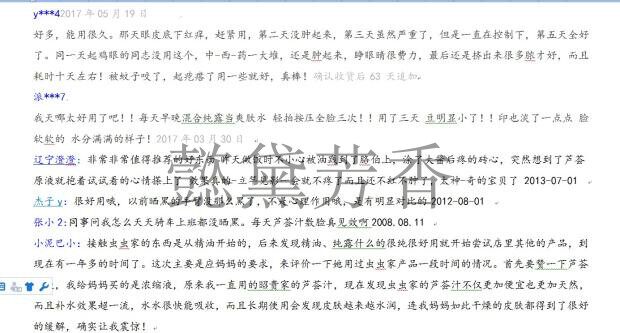 y***4 2017 年 05 月 19 日
好多，能用很久。那天眼皮底下红痒，赶紧用，第二天没肿起来，第三天虽然严重了，但是一直在控制下，第五天全好
了。同一天起鸡眼的同志没用这个，中-西-药一大堆，还是肿起来，睁眼睛很费力，最后还是挤出来很多脓才好，而且
耗时十天左右！被蚊子咬了，起疙瘩了用一些就好，真棒！确认收货后 63 天追加
派***7
我天哪太好用了吧！！每天早晚混合纯露当爽肤水 轻拍按压全脸三次！！用了三天 豆明显小了！！印也淡了一点点 脸
软软的 水分满满的样子！2017 年 03 月 30 日
辽宁澄澄：非常非常值得推荐的好东西 昨天做饭时不小心被油溅到了胳膊上，涂了大酱后疼的钻心，突然想到了芦荟
原液就抱着试试看的心情搽上了 效果真的 立竿见影 一会就不疼了而且还不红不肿了，太神-奇的宝贝了 2013-07-01
杰子 y：很好用哦，以前晒黑的手臂没那么黑了，不是心理作用哦，是有明显对比的 2012-08-01
张小 2：同事问我怎么天天骑车上班都没晒黑。每天芦荟汁敷脸真见效啊 2008.08.11
小泥巴小：接触虫虫家的东西是从精油开始的，后来发现精油、纯露什么的很纯很好用就开始尝试店里其他的产品，到
现在有一年多的时间了。这次主要是应妈妈的要求，来评价一下她用过虫虫家产品一段时间的情况。首先要赞一下芦荟
，我给妈妈买的是浓缩液，原来我一直用的昭贵家的芦荟汁，现在发现虫虫家的芦荟汁不仅更加便宜也更加天然，
而且补水效果超一流，水水很快能吸收，而且长期使用会发现皮肤越来越水润，连我妈妈如此干燥的皮肤都得到了很好
的缓解，确实让我震惊！
懿黛芳香